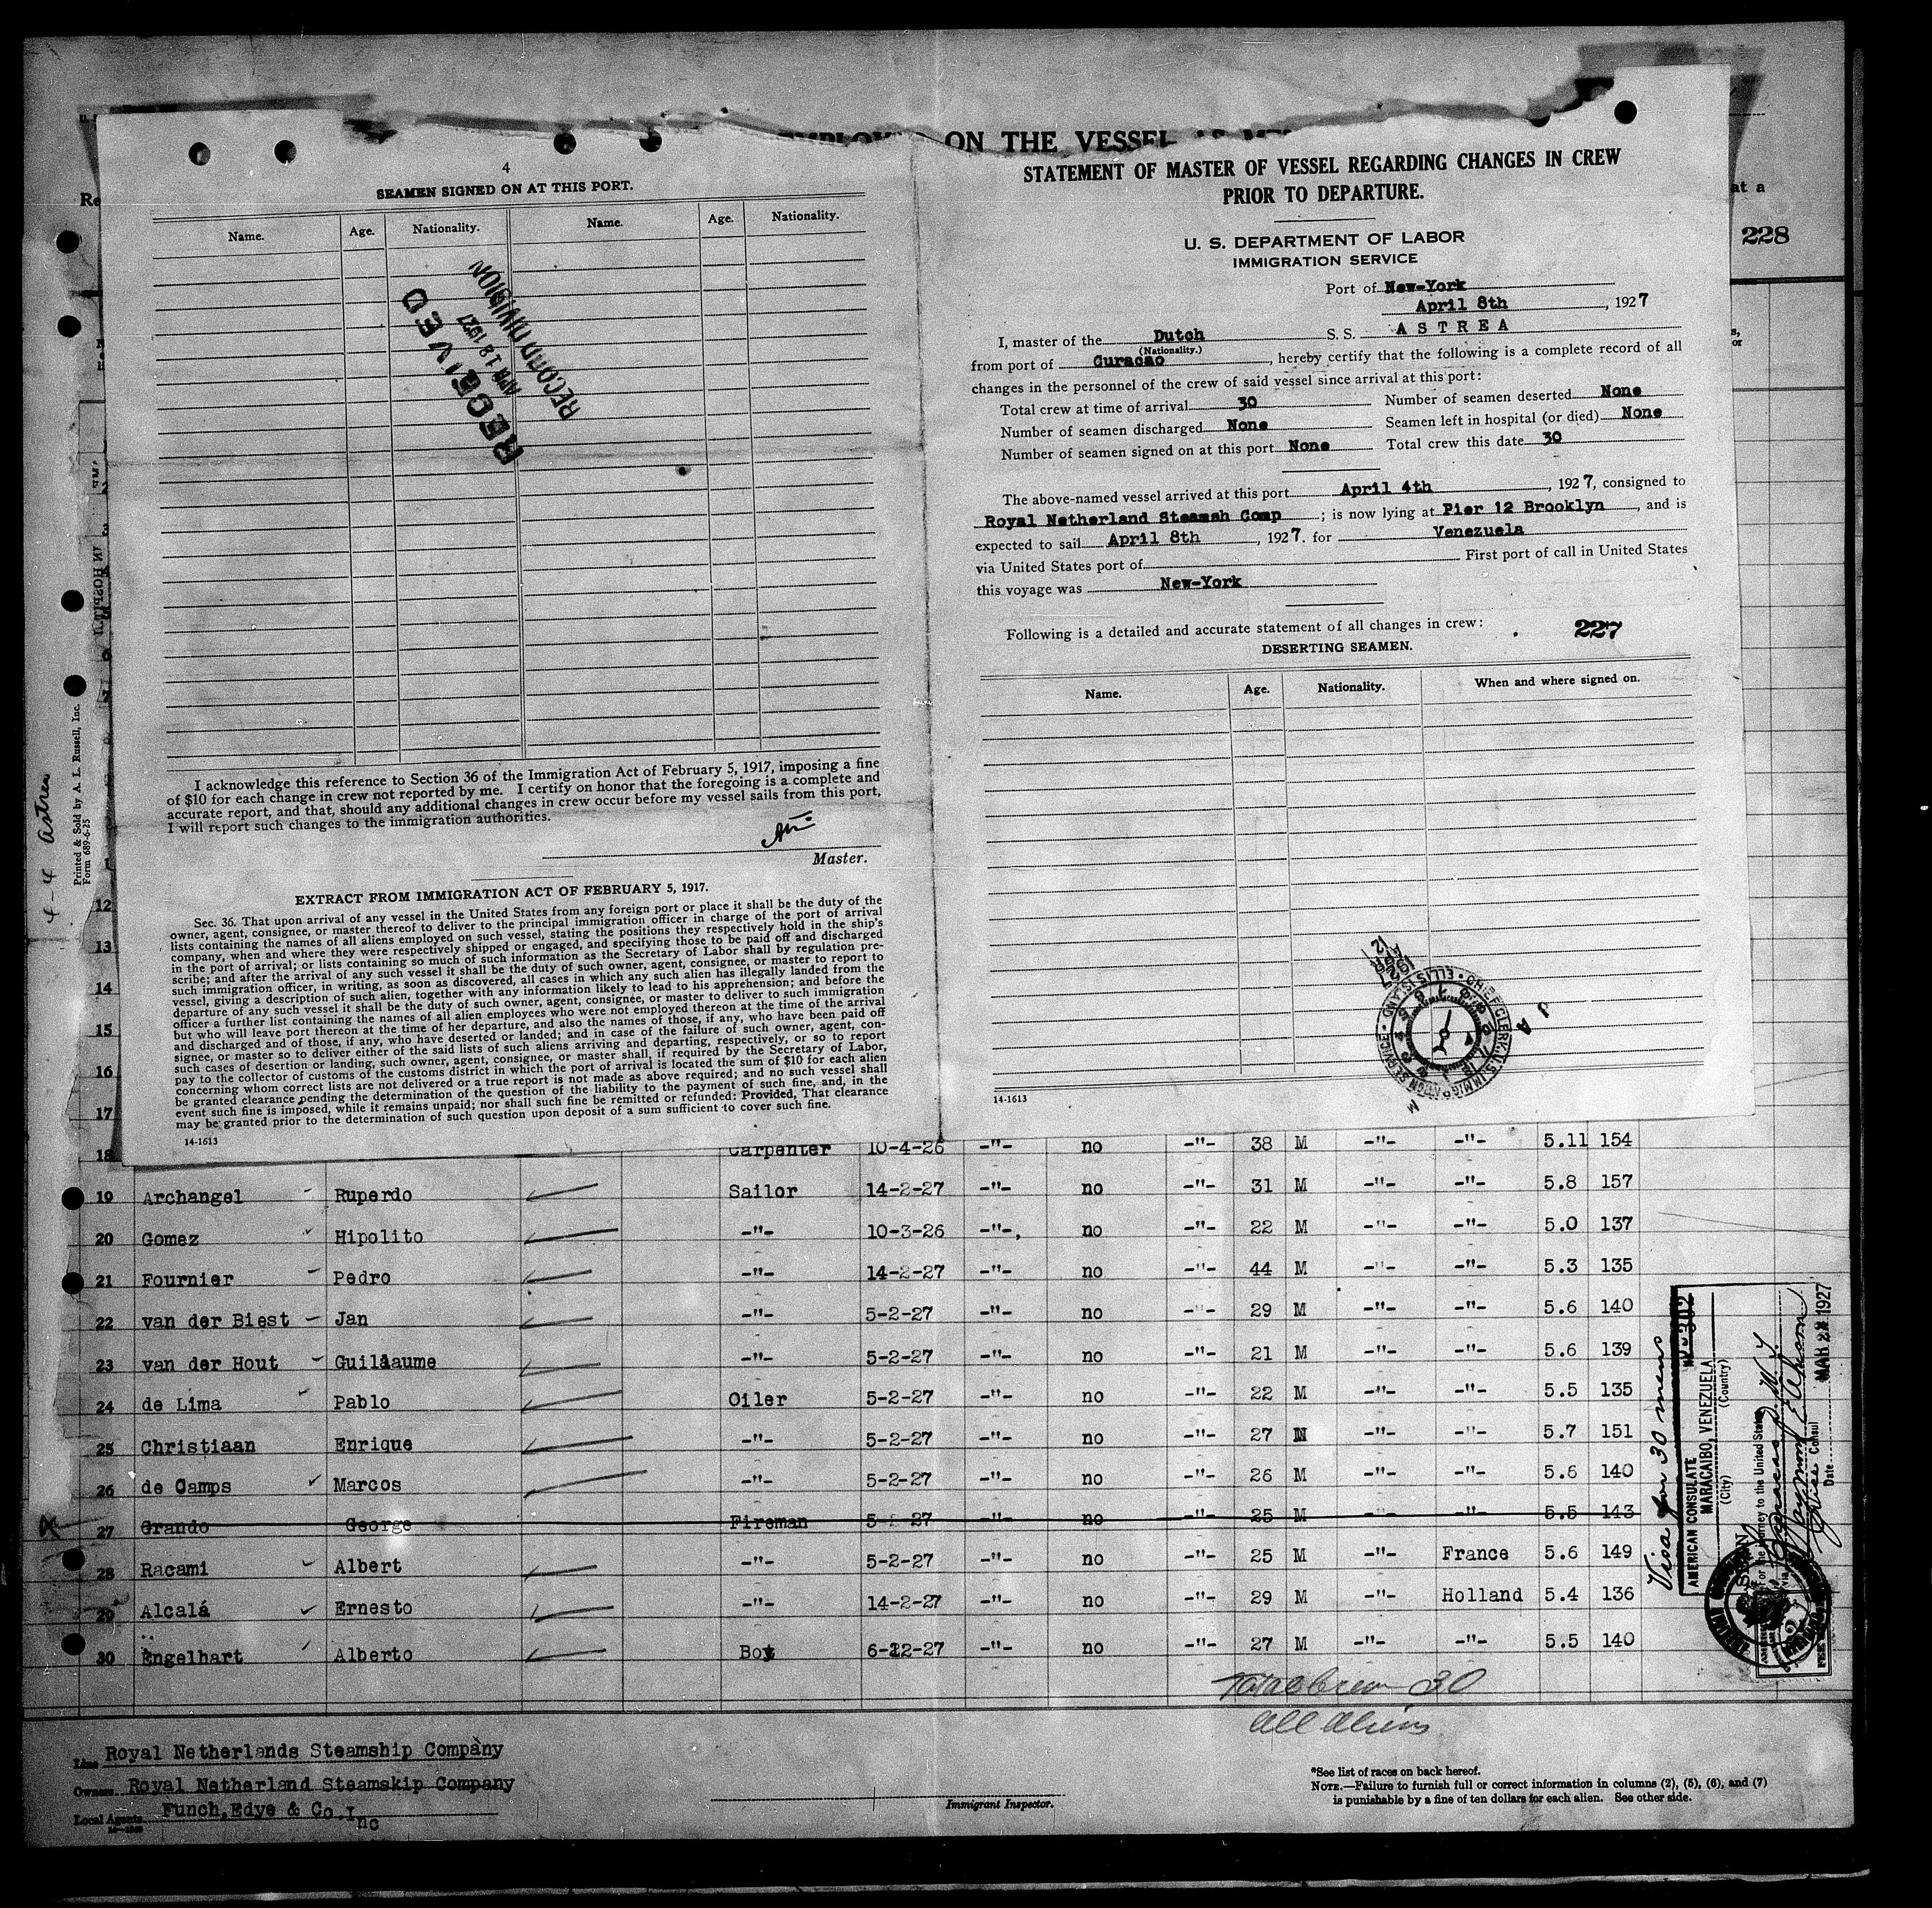 EMPLOY ON THE VESSEL AS ME
Re
at a
228
4
SEAMEN SIGNED ON AT THIS PORT.
Name. Age. Nationality. Name. Age. Nationality.
RECEIVED
APR 18 1927
RECORD DIVISION
I acknowledge this reference to Section 36 of the Immigration Act of February 5, 1917, imposing a fine
of $10 for each change in crew not reported by me. I certify on honor that the foregoing is a complete and
accurate report, and that, should any additional changes in crew occur before my vessel sails from this port,
I will report such changes to the immigration authorities.
Master.
EXTRACT FROM IMMIGRATION ACT OF FEBRUARY 5, 1917.
Sec. 36. That upon arrival of any vessel in the United States from any foreign port or place it shall be the duty of the
owner, agent, consignee, or master thereof to deliver to the principal immigration officer in charge of the port of arrival
lists containing the names of all aliens employed on such vessel, stating the positions they respectively hold in the ship's
company, when and where they were respectively shipped or engaged, and specifying those to be paid off and discharged
in the port of arrival; or lists containing so much of such information as the Secretary of Labor shall by regulation pre-
scribe; and after the arrival of any such vessel it shall be the duty of such owner, agent, consignee, or master to report to
such immigration officer, in writing, as soon as discovered, all cases in which any such alien has illegally landed from the
vessel, giving a description of such alien, together with any information likely to lead to his apprehension; and before the
departure of any such vessel it shall be the duty of such owner, agent, consignee, or master to deliver to such immigration
officer a further list containing the names of all alien employees who were not employed thereon at the time of the arrival
but who will leave port thereon at the time of her departure, and also the names of those, if any, who have been paid off
and discharged and of those, if any, who have deserted or landed; and in case of the failure of such owner, agent, con-
signee, or master so to deliver either of the said lists of such aliens arriving and departing, respectively, or so to report
such cases of desertion or landing, such owner, agent, consignee, or master shall, if required by the Secretary of Labor,
pay to the collector of customs of the customs district in which the port of arrival is located the sum of $10 for each alien
concerning whom correct lists are not delivered or a true report is not made as above required; and no such vessel shall
be granted clearance pending the determination of the question of the liability to the payment of such fine, and, in the
event such fine is imposed, while it remains unpaid; nor shall such fine be remitted or refunded: Provided, That clearance
may be granted prior to the determination of such question upon deposit of a sum sufficient to cover such fine.
14-1613
STATEMENT OF MASTER OF VESSEL REGARDING CHANGES IN CREW
PRIOR TO DEPARTURE.
U. S. DEPARTMENT OF LABOR
IMMIGRATION SERVICE
Port of New-York
April 8th, 1927
I, master of the Dutch S. S. ASTREA
(Nationality.)
from port of Curacao, hereby certify that the following is a complete record of all
changes in the personnel of the crew of said vessel since arrival at this port:
Total crew at time of arrival 30 Number of seamen deserted None
Number of seamen discharged None Seamen left in hospital (or died) None
Number of seamen signed on at this port None Total crew this date 30
The above-named vessel arrived at this port April 4th, 1927, consigned to
Royal Netherland Steamsh Comp; is now lying at Pier 12 Brooklyn, and is
expected to sail April 8th, 1927. for Venezuela
via United States port of First port of call in United States
this voyage was New-York
Following is a detailed and accurate statement of all changes in crew:
227
DESERTING SEAMEN.
Name. Age. Nationality. When and where signed on.
1927 APR 12
CHIEF CLERK U.S. IMMIGRATION SERVICE · ELLIS ISLAND ·
14-1613
4-4 Astrea
Printed & Sold by A. L. Russell, Inc.
Form 689-6-25
12
13
14
15
16
17
18 Carpenter 10-4-26 -"- no -"- 38 M -"- -"- 5.11 154
19 Archangel Ruperdo Sailor 14-2-27 -"- no -"- 31 M -"- -"- 5.8 157
20 Gomez Hipolito -"- 10-3-26 -"-, no -"- 22 M -"- -"- 5.0 137
21 Fournier Pedro -"- 14-2-27 -"- no -"- 44 M -"- -"- 5.3 135
22 van der Biest Jan -"- 5-2-27 -"- no -"- 29 M -"- -"- 5.6 140
23 van der Hout Guillaume -"- 5-2-27 -"- no -"- 21 M -"- -"- 5.6 139
24 de Lima Pablo Oiler 5-2-27 -"- no -"- 22 M -"- -"- 5.5 135
25 Christiaan Enrique -"- 5-2-27 -"- no -"- 27 M -"- -"- 5.7 151
26 de Camps Marcos -"- 5-2-27 -"- no -"- 26 M -"- -"- 5.6 140
27 Grando George Fireman 5-2-27 -"- no -"- 25 M -"- -"- 5.5 143
28 Racami Albert -"- 5-2-27 -"- no -"- 25 M -"- France 5.6 149
29 Alcalá Ernesto -"- 14-2-27 -"- no -"- 29 M -"- Holland 5.4 136
30 Engelhart Alberto Boy 6-12-27 -"- no -"- 27 M -"- -"- 5.5 140
Total Crew 30
all aliens
Visa for 30 mens
No. 302
AMERICAN CONSULATE
MARACAIBO, VENEZUELA
(City) (Country)
SEEN
For the journey to the United States
via
Vice Consul
Date MAR 2 1927
Line Royal Netherlands Steamship Company
Owners Royal Netherland Steamskip Company
Local Agents Funch, Edye & Co. Inc
Immigrant Inspector.
*See list of races on back hereof.
NOTE.—Failure to furnish full or correct information in columns (2), (5), (6), and (7)
is punishable by a fine of ten dollars for each alien. See other side.